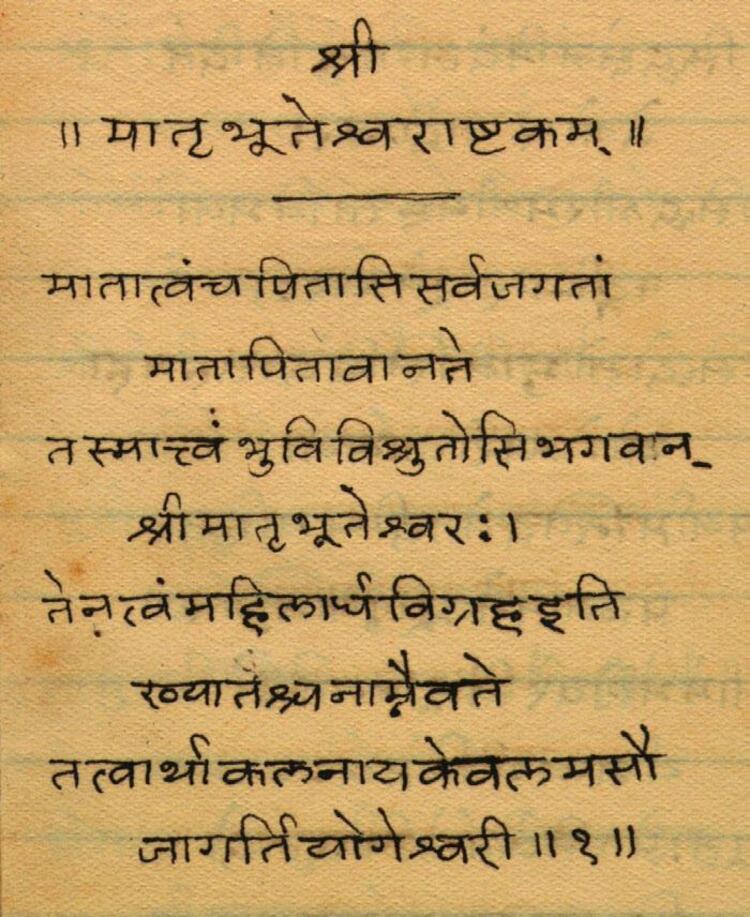 श्री
॥ मातृभूतेश्वराष्टकम् ॥
मातात्वंच पितासि सर्वजगतां
मातापितावानते
तस्मात्त्वं भुवि विश्रुतोसि भगवान्
श्रीमातृभूतेश्वरः।
तेनत्वं महिलार्धविग्रह इति
ख्यातश्च नाम्नैवते
तत्वार्थाकलनाय केवलमसौ
जागर्ति योगेश्वरी ॥ १ ॥